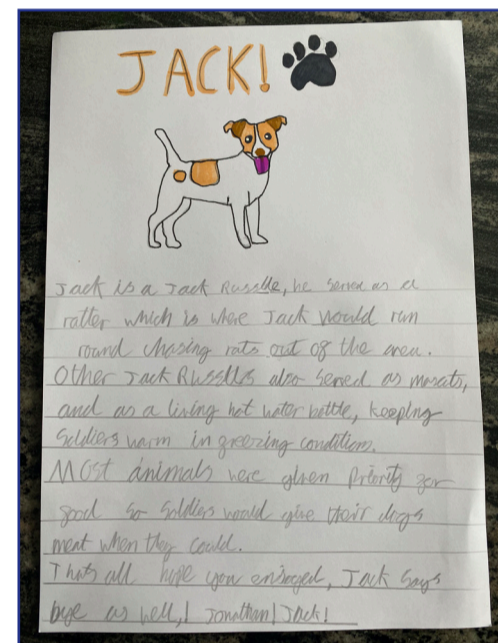 JACK!
Jack is a Jack Russlle, he served as a
ratter which is where Jack would run
round chasing rats out of the area.
Other Jack Russlls also served as mascats,
and as a living hot water bottle, keeping
Soldiers warm in freezing conditions.
Most animals were given Priority for
food so Soldiers would give their dogs
meat when they could.
Thats all hope you enjoyed, Jack Says
bye as well,! Jonathan! Jack!